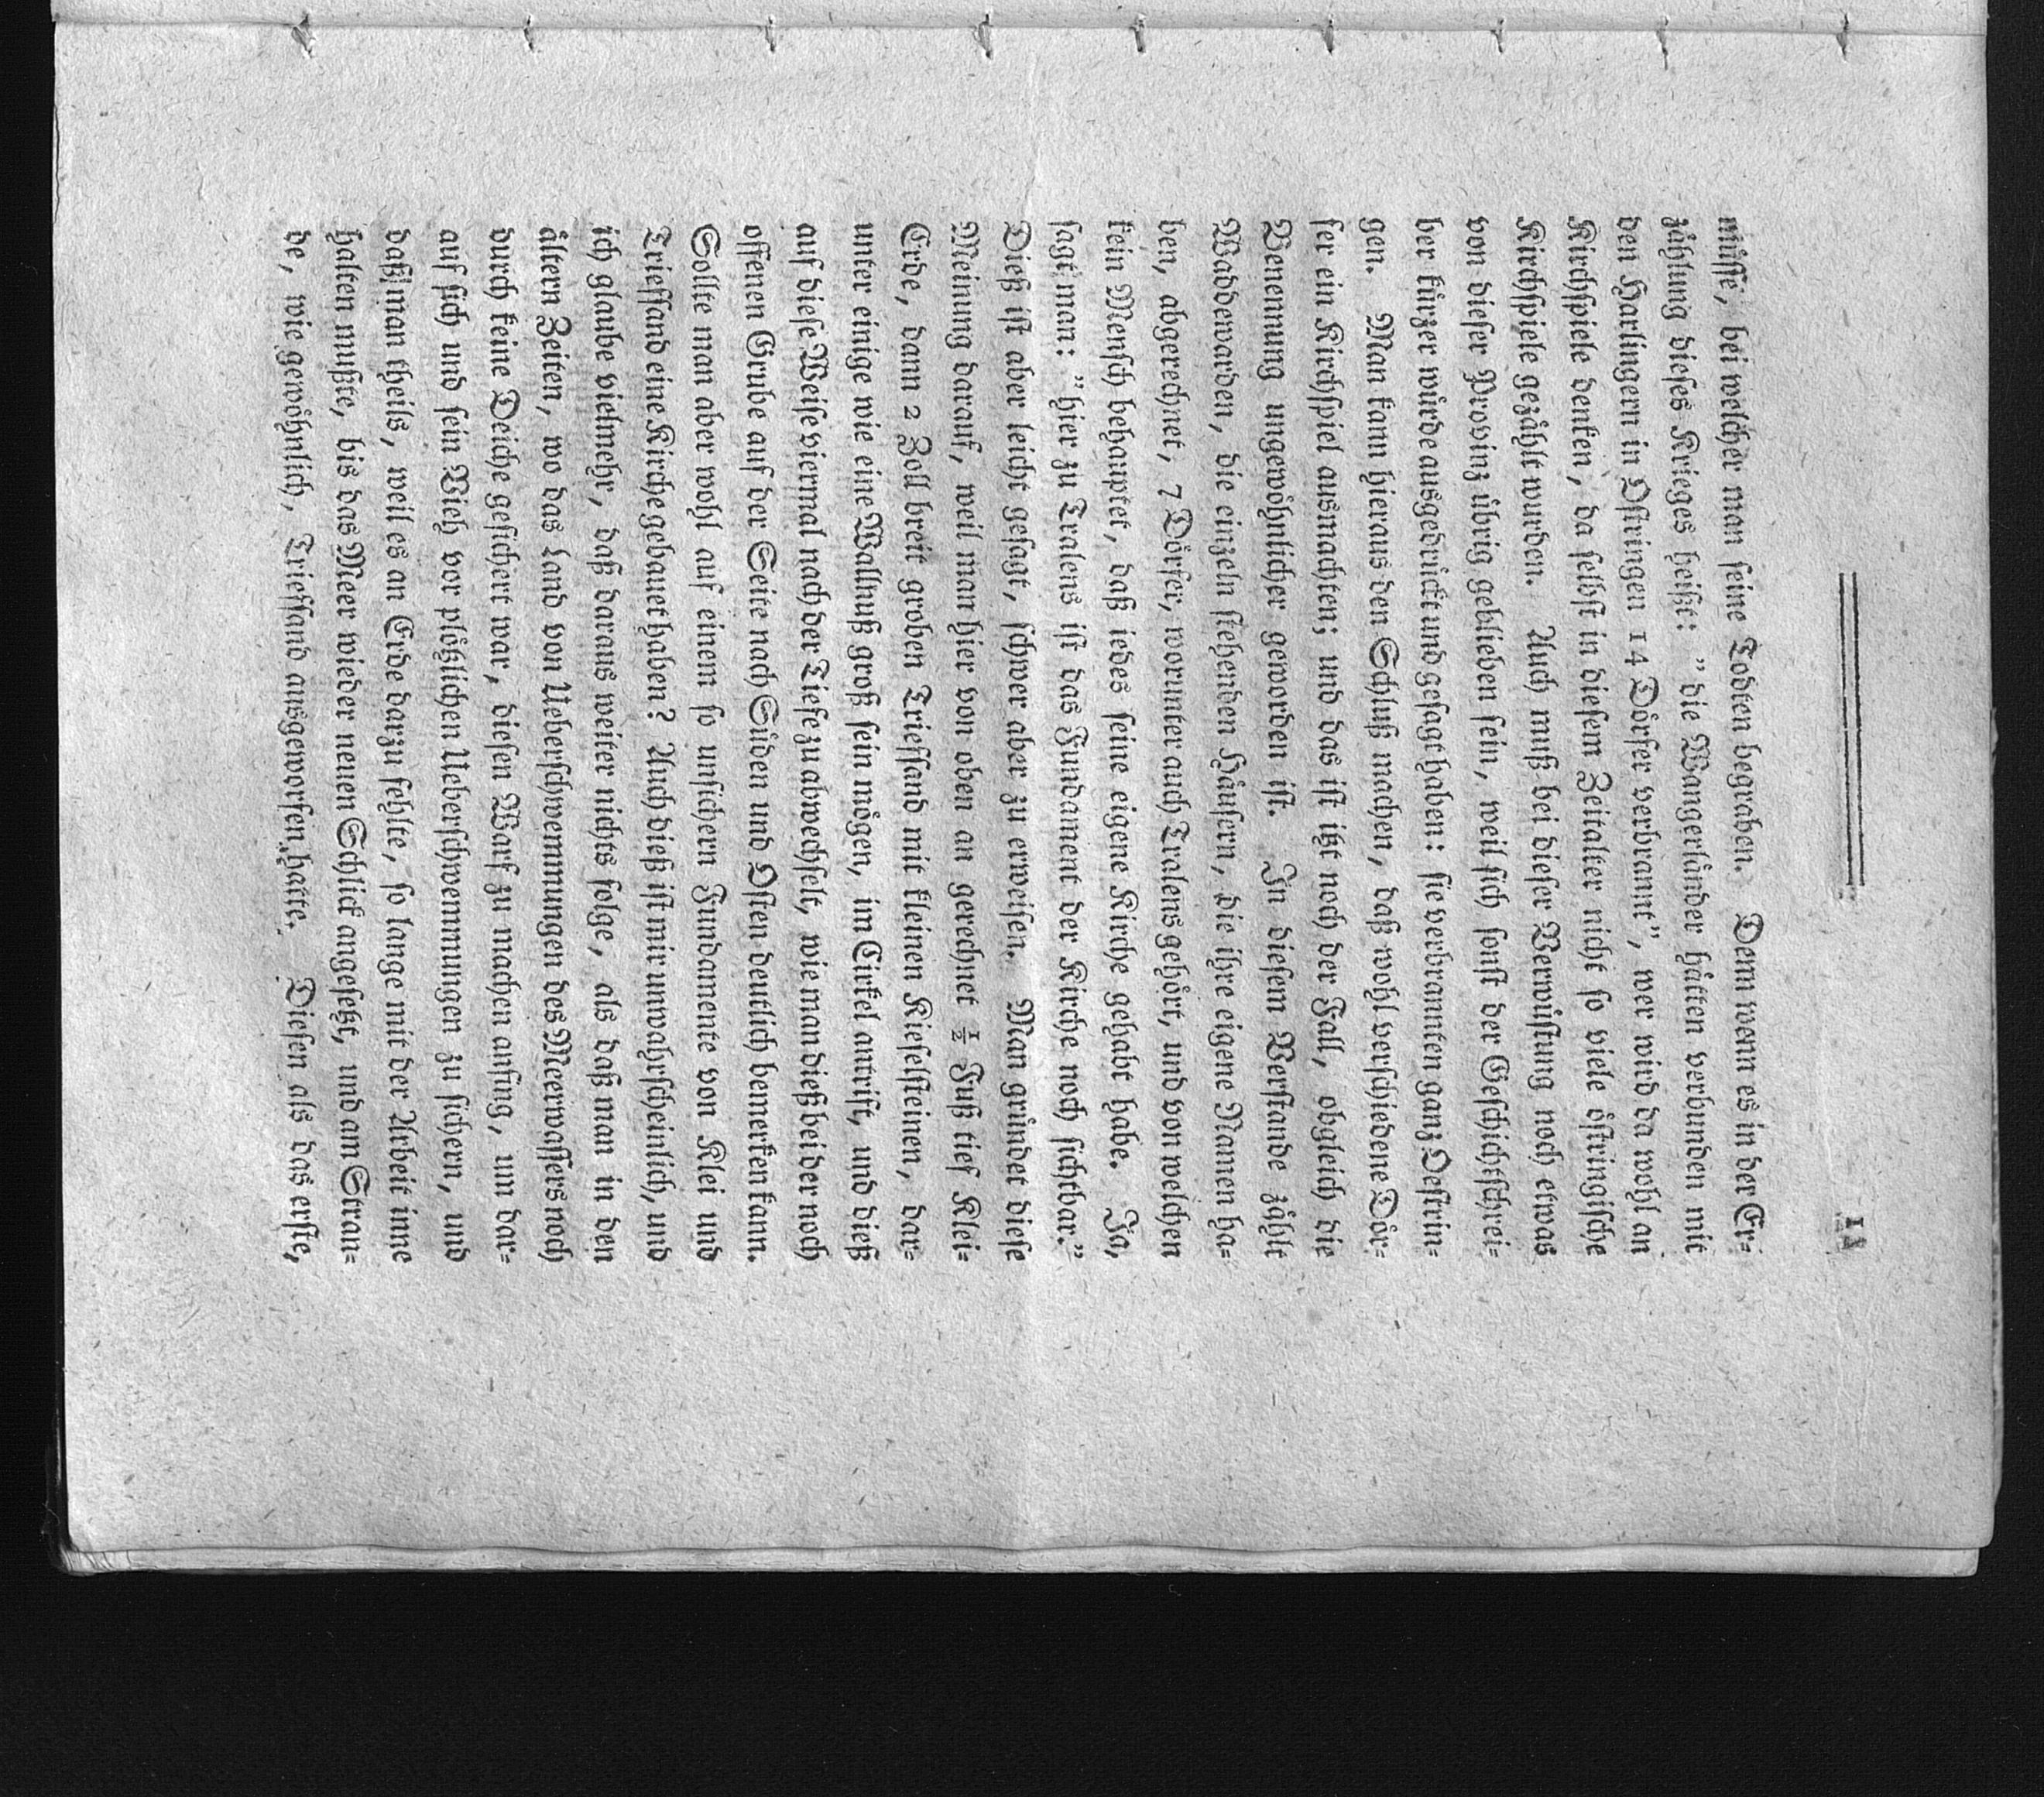 11
müsse, bei welcher man seine Todten begraben. Denn wenn es in der Er-
zählung dieses Krieges heißt: "die Wangerländer hätten verbunden mit
den Harlingern in Ostringen 14 Dörfer verbrannt", wer wird da wohl an
Kirchspiele denken, da selbst in diesem Zeitalter nicht so viele östringische
Kirchspiele gezählt wurden. Auch muß bei dieser Verwüstung noch etwas
von dieser Provinz übrig geblieben sein, weil sich sonst der Geschichtschrei-
ber kürzer würde ausgedrückt und gesagt haben: sie verbrannten ganz Oestrin-
gen. Man kann hieraus den Schluß machen, daß wohl verschiedene Dör-
fer ein Kirchspiel ausmachten; und das ist itzt noch der Fall, obgleich die
Benennung ungewöhnlicher geworden ist. In diesem Verstande zählt
Waddewarden, die einzeln stehenden Häusern, die ihre eigene Namen ha-
ben, abgerechnet, 7 Dörfer, worunter auch Tralens gehört, und von welchen
kein Mensch behauptet, daß iedes seine eigene Kirche gehabt habe. Ja,
sagt man: "hier zu Tralens ist das Fundament der Kirche noch sichtbar."
Dieß ist aber leicht gesagt, schwer aber zu erweisen. Man gründet diese
Meinung darauf, weil man hier von oben an gerechnet ½ Fuß tief Klei-
Erde, dann 2 Zoll breit groben Triefsand mit kleinen Kieselsteinen, dar-
unter einige wie eine Wallnuß groß sein mögen, im Cirkel antrift, und dieß
auf diese Weise viermal nach der Tiefe zu abwechselt, wie man dieß bei der noch
offenen Grube auf der Seite nach Süden und Osten deutlich bemerken kann.
Sollte man aber wohl auf einem so unsichern Fundamente von Klei und
Triefsand eine Kirche gebauet haben? Auch dieß ist mir unwahrscheinlich, und
ich glaube vielmehr, daß daraus weiter nichts folge, als daß man in den
ältern Zeiten, wo das Land von Ueberschwemmungen des Meerwassers noch
durch keine Deiche gesichert war, diesen Warf zu machen anfing, um dar-
auf sich und sein Vieh vor plötzlichen Ueberschwemmungen zu sichern, und
daß man theils, weil es an Erde darzu fehlte, so lange mit der Arbeit inne
halten mußte, bis das Meer wieder neuen Schlick angesetzt, und am Stran-
de, wie gewöhnlich, Triefsand ausgeworfen hatte. Diesen als das erste,